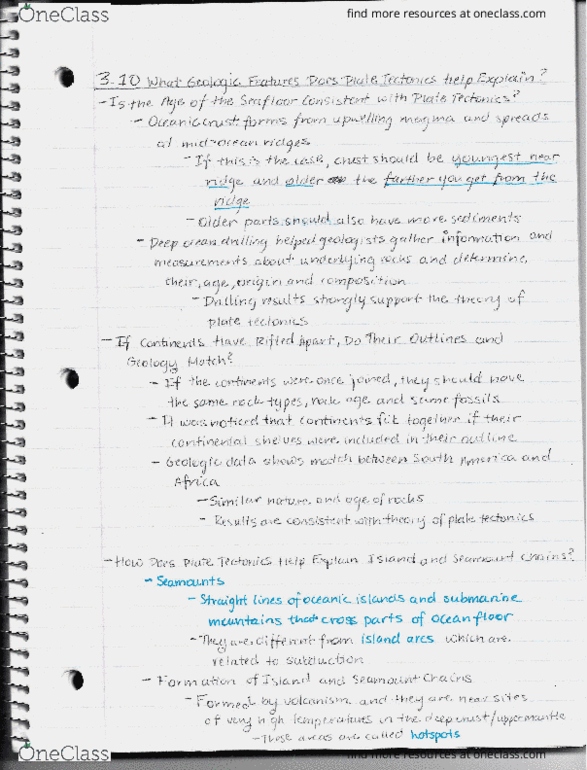 OneClass
find more resources at oneclass.com
3.10 What Geologic Features Does Plate Tectonics help Explain?
- Is the Age of the Seafloor Consistent with Plate Tectonics?
- Oceanic crust forms from upwelling magma and spreads
at mid-ocean ridges
- If this is the case, crust should be youngest near
ridge and older the farther you get from the
ridge
- Older parts should also have more sediments
- Deep ocean drilling helped geologists gather information and
measurements about underlying rocks and determine
their, age, origin and composition
- Drilling results strongly support the theory of
plate tectonics
- If Continents Have Rifted Apart, Do Their Outlines and
Geology Match?
- If the continents were once joined, they should have
the same rock types, rock age and same fossils
- It was noticed that continents fit together if their
continental shelves were included in their outline
- Geologic data shows match between South America and
Africa
- Similar nature and age of rocks
- Results are consistent with theory of plate tectonics
- How Does Plate Tectonics Help Explain Island and Seamount Chains?
- Seamounts
- Straight lines of oceanic islands and submarine
mountains that cross parts of ocean floor
- They are different from island arcs which are
related to subduction
- Formation of Island and Seamount Chains
- Formed by volcanism and they are near sites
of very high temperatures in the deep crust/upper mantle
- These areas are called hotspots
OneClass
find more resources at oneclass.com